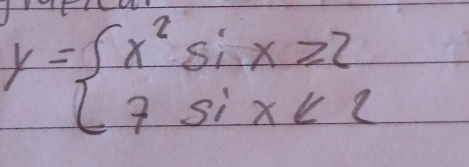 y = { x² si x ≥ 2
7 si x < 2